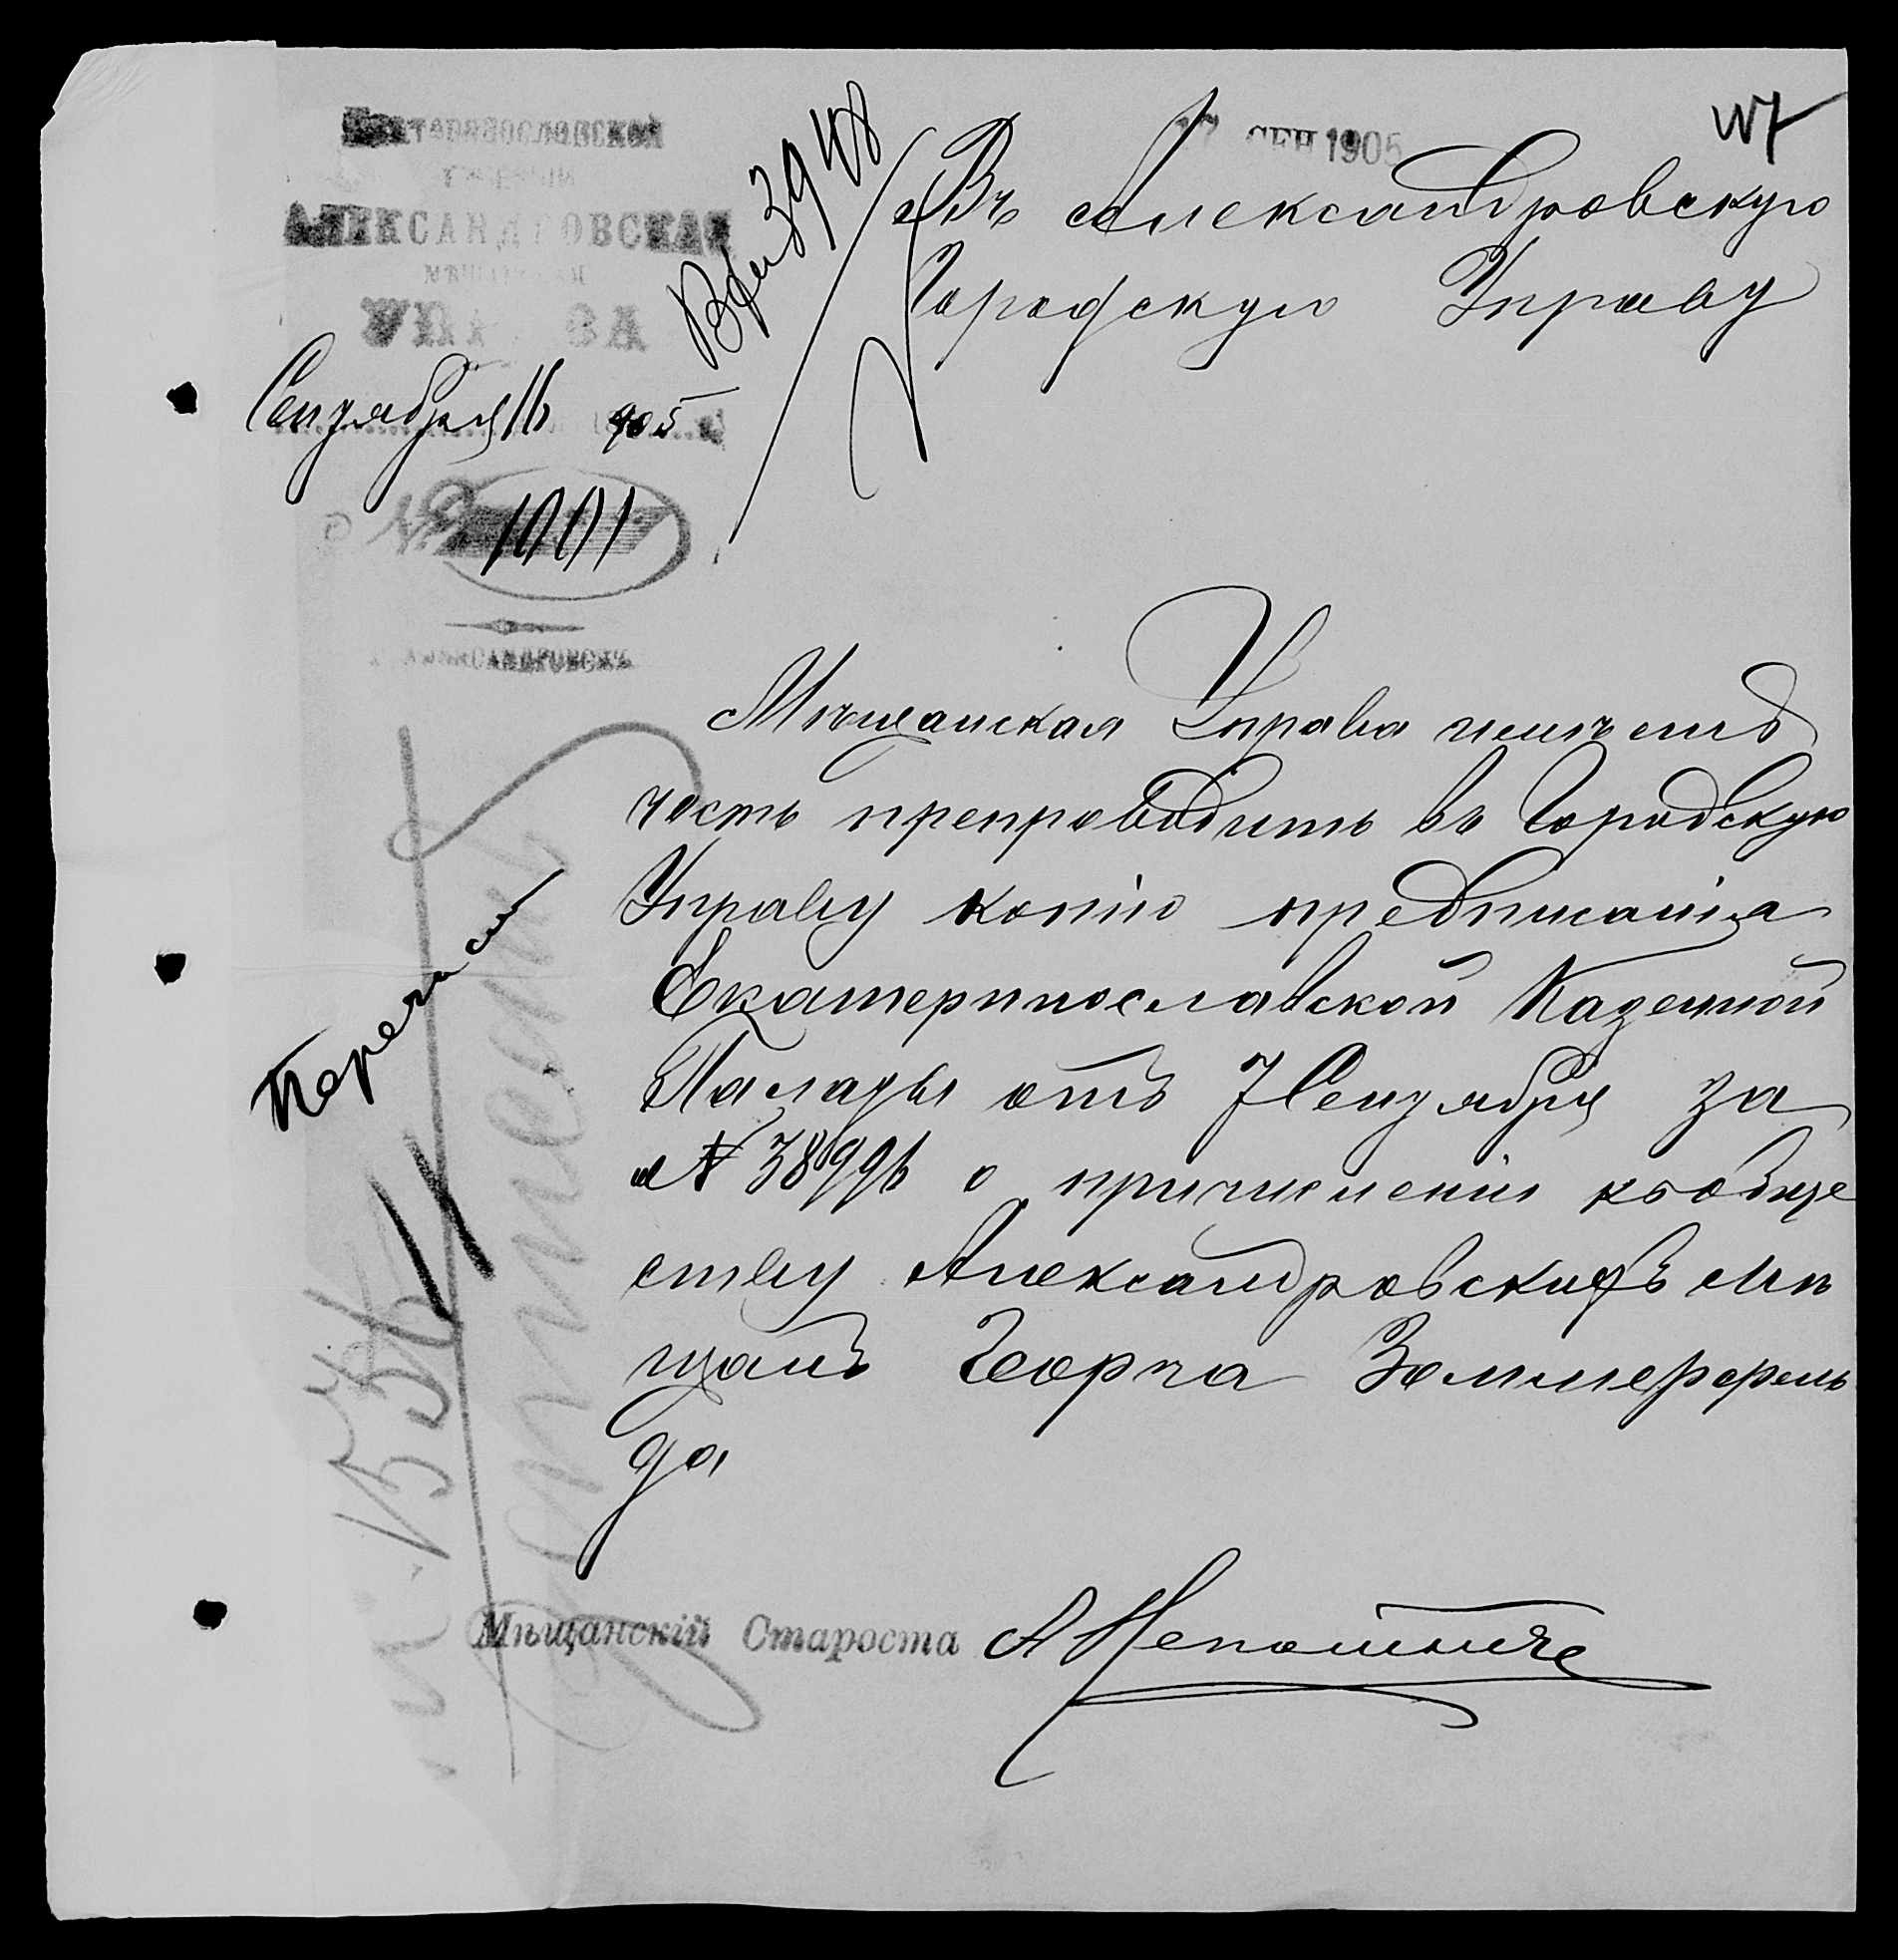 Екатеринославской
АЛЕКСАНДРОВСКАЯ
МѢЩАНСКАЯ
УПРАВА
Сентября 16 905
№ 1001
АЛЕКСАНДРОВСКЪ
17 СЕН 1905
Въ Александровскую
Городскую Управу
Мѣщанская Управа имѣетъ
честь препроводить въ Городскую
Управу копію предписанія
Екатеринославской Казенной
Палаты отъ 7 Сентября за
№ 38996 о причисленіи къ обще
ству Александровскихъ мѣ
щанъ Георга Зоммерфель
да
Мѣщанскій Староста